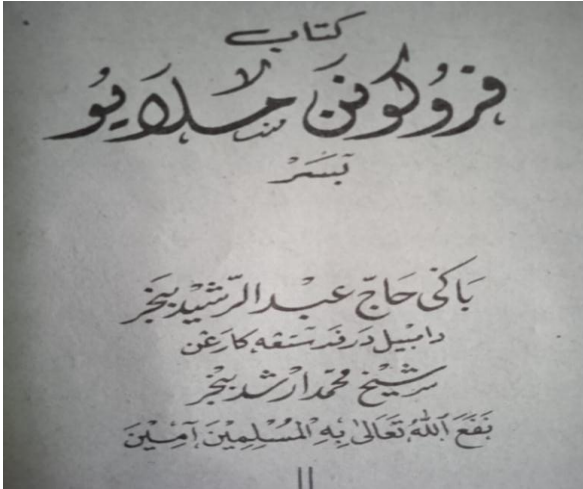 كتاب
ڤروكونن ملايو
بسر
باݢي حاج عبد الرشيد بنجر
دامبيل درڤد ستڠه كارڠن
شيخ محمد ارشد بنجر
نَفَعَ اَللهُ تَعَالَىٰ بِهِ الْمُسْلِمِيْنَ آمِيْنَ